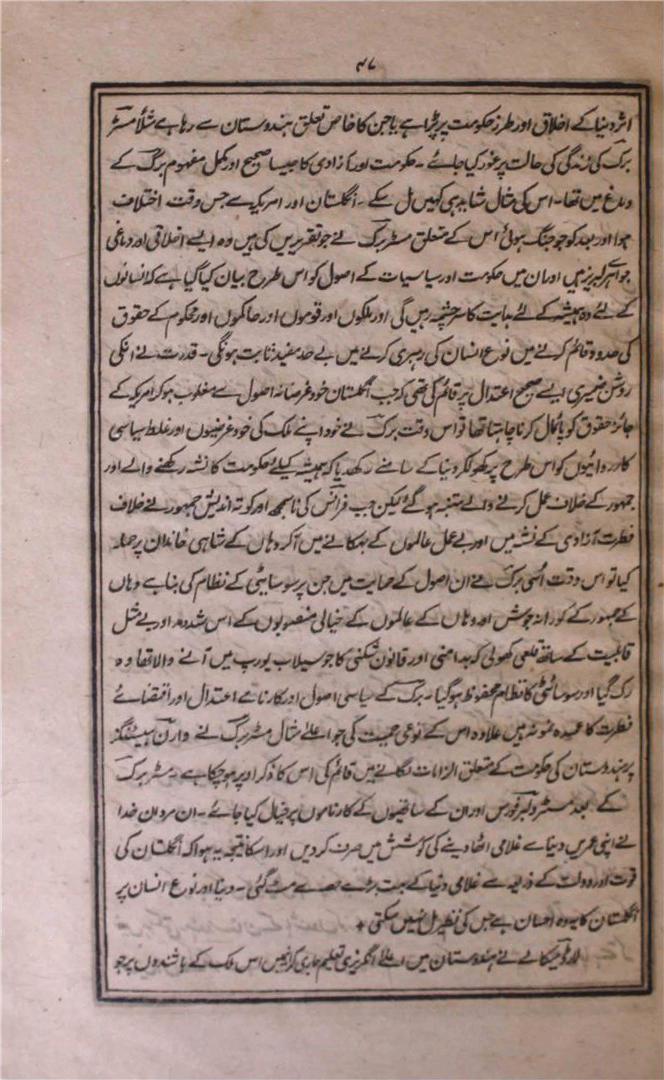 ۴۷
اثر دنیا کے اخلاق اور طرز حکومت پر پڑا ہے یا جن کا خاص تعلق ہندوستان سے رہا ہے مثلاً مسٹر
برک کی زندگی کی حالت پر غور کیا جائے ۔ حکومت اور آزادی کا جیسا صحیح اور مکمل مفہوم برک کے
دماغ میں تھا ۔ اس کی مثال شاید ہی کہیں مل سکے ۔ انگلستان اور امریکہ سے جس وقت اختلاف
ہوا اور بعد کو جو جنگ ہوئی اس کے متعلق مسٹر برک نے جو تقریریں کی ہیں وہ ایسے اخلاقی اور دماغی
جواہر لبریز ہیں اور ان میں حکومت اور سیاسیات کے اصول کو اس طرح بیان کیا گیا ہے کہ انسانوں
کے لئے وہ ہمیشہ کے لئے ہدایت کا سرچشمہ رہیں گی اور ملکوں اور قوموں اور حاکموں اور محکوم کے حقوق
کی حدود قائم کرنے میں نوع انسان کی رہبری کرنے میں بے حد مفید ثابت ہونگی ۔ قدرت نے انکی
روشن ضمیری ایسے صحیح اعتدال پر قائم کی تھی کہ جب انگلستان خود غرضانہ اصول سے مغلوب ہو کر امریکہ کے
جائز حقوق کو پائمال کرنا چاہتا تھا تو اس وقت برک نے خود اپنے ملک کی خود غرضیوں اور غلط سیاسی
کارروائیوں کو اس طرح پر کھولکر دنیا کے سامنے رکھدیا کہ ہمیشہ کیلئے حکومت کا نشہ رکھنے والے اور
جمہور کے خلاف عمل کرنے والے متنبہ ہو گئے لیکن جب فرانس کی ناسمجھ اور کوتہ اندیش جمہور نے خلاف
فطرت آزادی کے نشہ میں اور بے عمل عالموں کے بہکانے میں آکر وہاں کے شاہی خاندان پر حملہ
کیا تو اس وقت اُسی برک نے ان اصول کے حمایت میں جن پر سوسائٹی کے نظام کی بنا ہے وہاں
کے جمہور کے کورانہ جوش اور وہاں کے عالموں کے خیالی منصوبوں کے اس شد و مد اور بے مثل
قابلیت کے ساتھ قلعی کھولی کہ بد امنی اور قانون شکنی کا جو سیلاب یورپ میں آنے والا تھا وہ
رک گیا اور سوسائٹی کا نظام محفوظ ہو گیا ۔ برک کے سیاسی اصول اور کارنامے اعتدال اور اقتضائے
فطرت کا عمدہ نمونہ ہیں علاوہ اس کے نوعی حمیت کی جو اعلےٰ مثال مسٹر برک نے وارن ہیسٹنگز
پر ہندوستان کی حکومت کے متعلق الزامات لگانے میں قائم کی اس کا ذکر اوپر ہو چکا ہے ۔ مسٹر برک
کے بعد مسٹر ولبرفورس اور ان کے ساتھیوں کے کارناموں پر خیال کیا جائے ۔ ان مردان خدا
نے اپنی عمریں دنیا سے غلامی اٹھا دینے کی کوشش میں صرف کر دیں اور اسکا نتیجہ یہ ہوا کہ انگلستان کی
قوت اور دولت کے ذریعہ سے غلامی دنیا کے بہت بڑے حصے سے مٹ گئی ۔ دنیا اور نوع انسان پر
انگلستان کا یہ وہ احسان ہے جس کی نظیر مل نہیں سکتی +
لارڈ میکالے نے ہندوستان میں اعلےٰ انگریزی تعلیم جاری کرانے میں اس ملک کے باشندوں پر جو